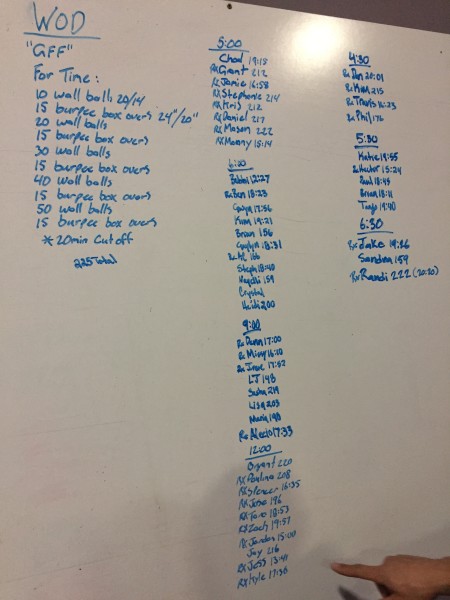 WOD
"GFF"
For Time:
10 wall balls 20/14
15 burpee box overs 24"/20"
20 wall balls
15 burpee box overs
30 wall balls
15 burpee box overs
40 wall balls
15 burpee box overs
50 wall balls
15 burpee box overs
*20min Cutoff
225 Total
5:00
Chad 19:15
RX Grant 212
Rx Jamie 16:58
RX Stephanie 214
RX Kris 212
RX Daniel 217
RX Mason 222
RX Manny 15:14
6:00
Bobbi 12:27
Rx Ben 18:23
17:56
Kim 19:21
Brian 156
18:31
Rx AC 166
Steph 18:40
159
Crystal
Heidi 200
9:00
Rx Dann 17:00
Rx Missy 16:10
Rx 17:52
LJ 148
Sasha 219
Lisa 203
Maria 198
Rx Alecio 17:33
12:00
Bryant 220
RX Paulina 208
RX Spencer 16:35
RX Jose 196
RX Tara 18:53
RX Zach 19:57
RX Jordan 15:00
Jay 216
RX Jess 13:41
RX Kyle 17:38
4:30
Rx Dan 20:01
Rx Kim 215
Rx Travis 16:23
Rx Phil 176
5:30
Katie 19:55
Rx Hector 15:24
Paul 18:45
Brian 18:11
19:40
6:30
Rx Jake 19:26
Sandra 159
Rx Randi 222 (20:20)